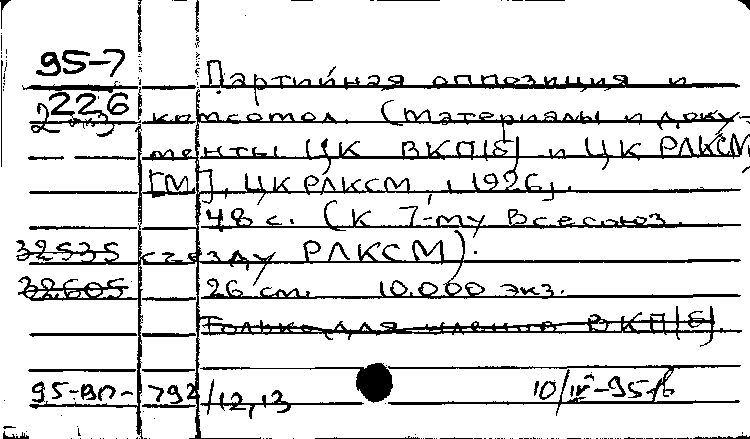 95-7
226
Партийная оппозиция и
комсомол. (Материалы и доку-
менты ЦК ВКП(б) и ЦК РЛКСМ)
[М], ЦК РЛКСМ, [1926].
48 с. (К 7-му Всесоюз.
съезду РЛКСМ).
32535
32605
26 см. 10.000 экз.
Только для членов ВКП(б).
95-ВП-792/12,13
10/IV-95